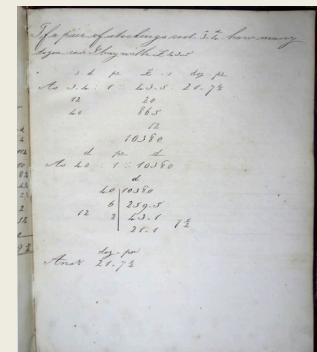 If a pair of stockings cost 3.4d how many
dozen can I buy with £43.5
s d pr £ s doz pr
As 3.4 : 1 :: 43.5 : 21.7½
12 20
40 865
12
10380
d pr d
As 40 : 1 :: 10380
d
40 10380
6 259.5
12 2 43.1
21.1 7½
doz pr
Ansr 21.7½